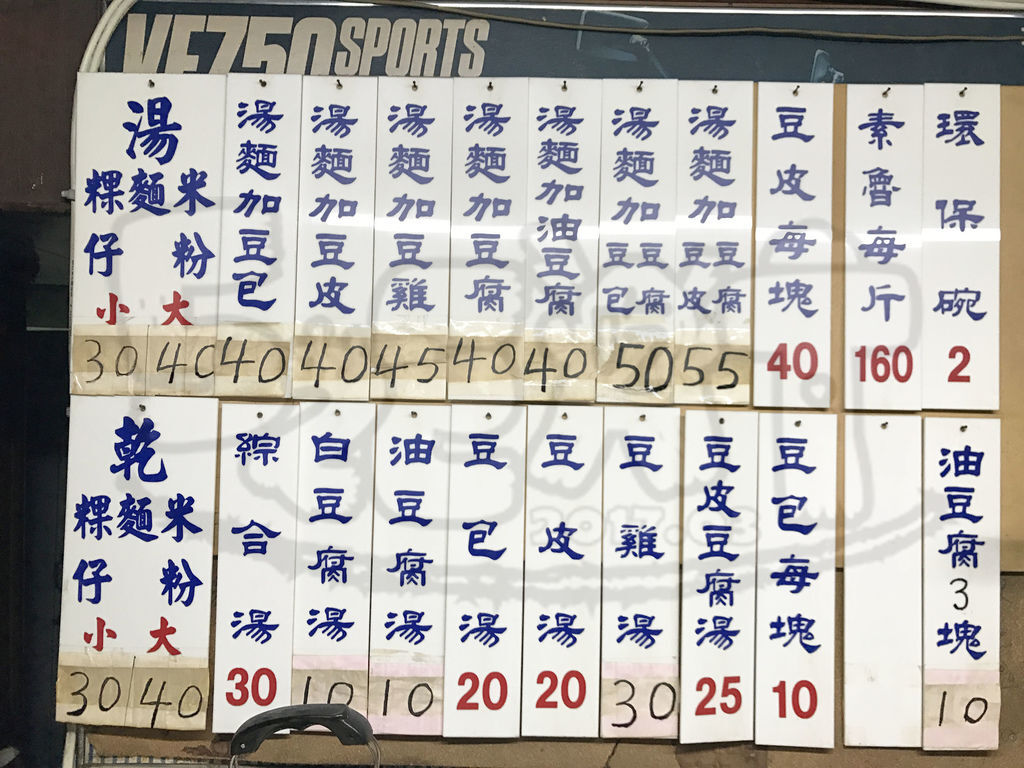 VFZ50 SPORTS
湯
粿仔 麵 米粉
小 大
30 40
湯麵加豆包
40
湯麵加豆皮
40
湯麵加豆雞
45
湯麵加豆腐
40
湯麵加油豆腐
40
湯麵加豆包豆腐
50
湯麵加豆皮豆腐
55
豆皮每塊
40
素魯每斤
160
環保碗
2
乾
粿仔 麵 米粉
小 大
30 40
綜合湯
30
白豆腐湯
10
油豆腐湯
10
豆包湯
20
豆皮湯
20
豆雞湯
30
豆皮豆腐湯
25
豆包每塊
10
油豆腐3塊
10
2017.03